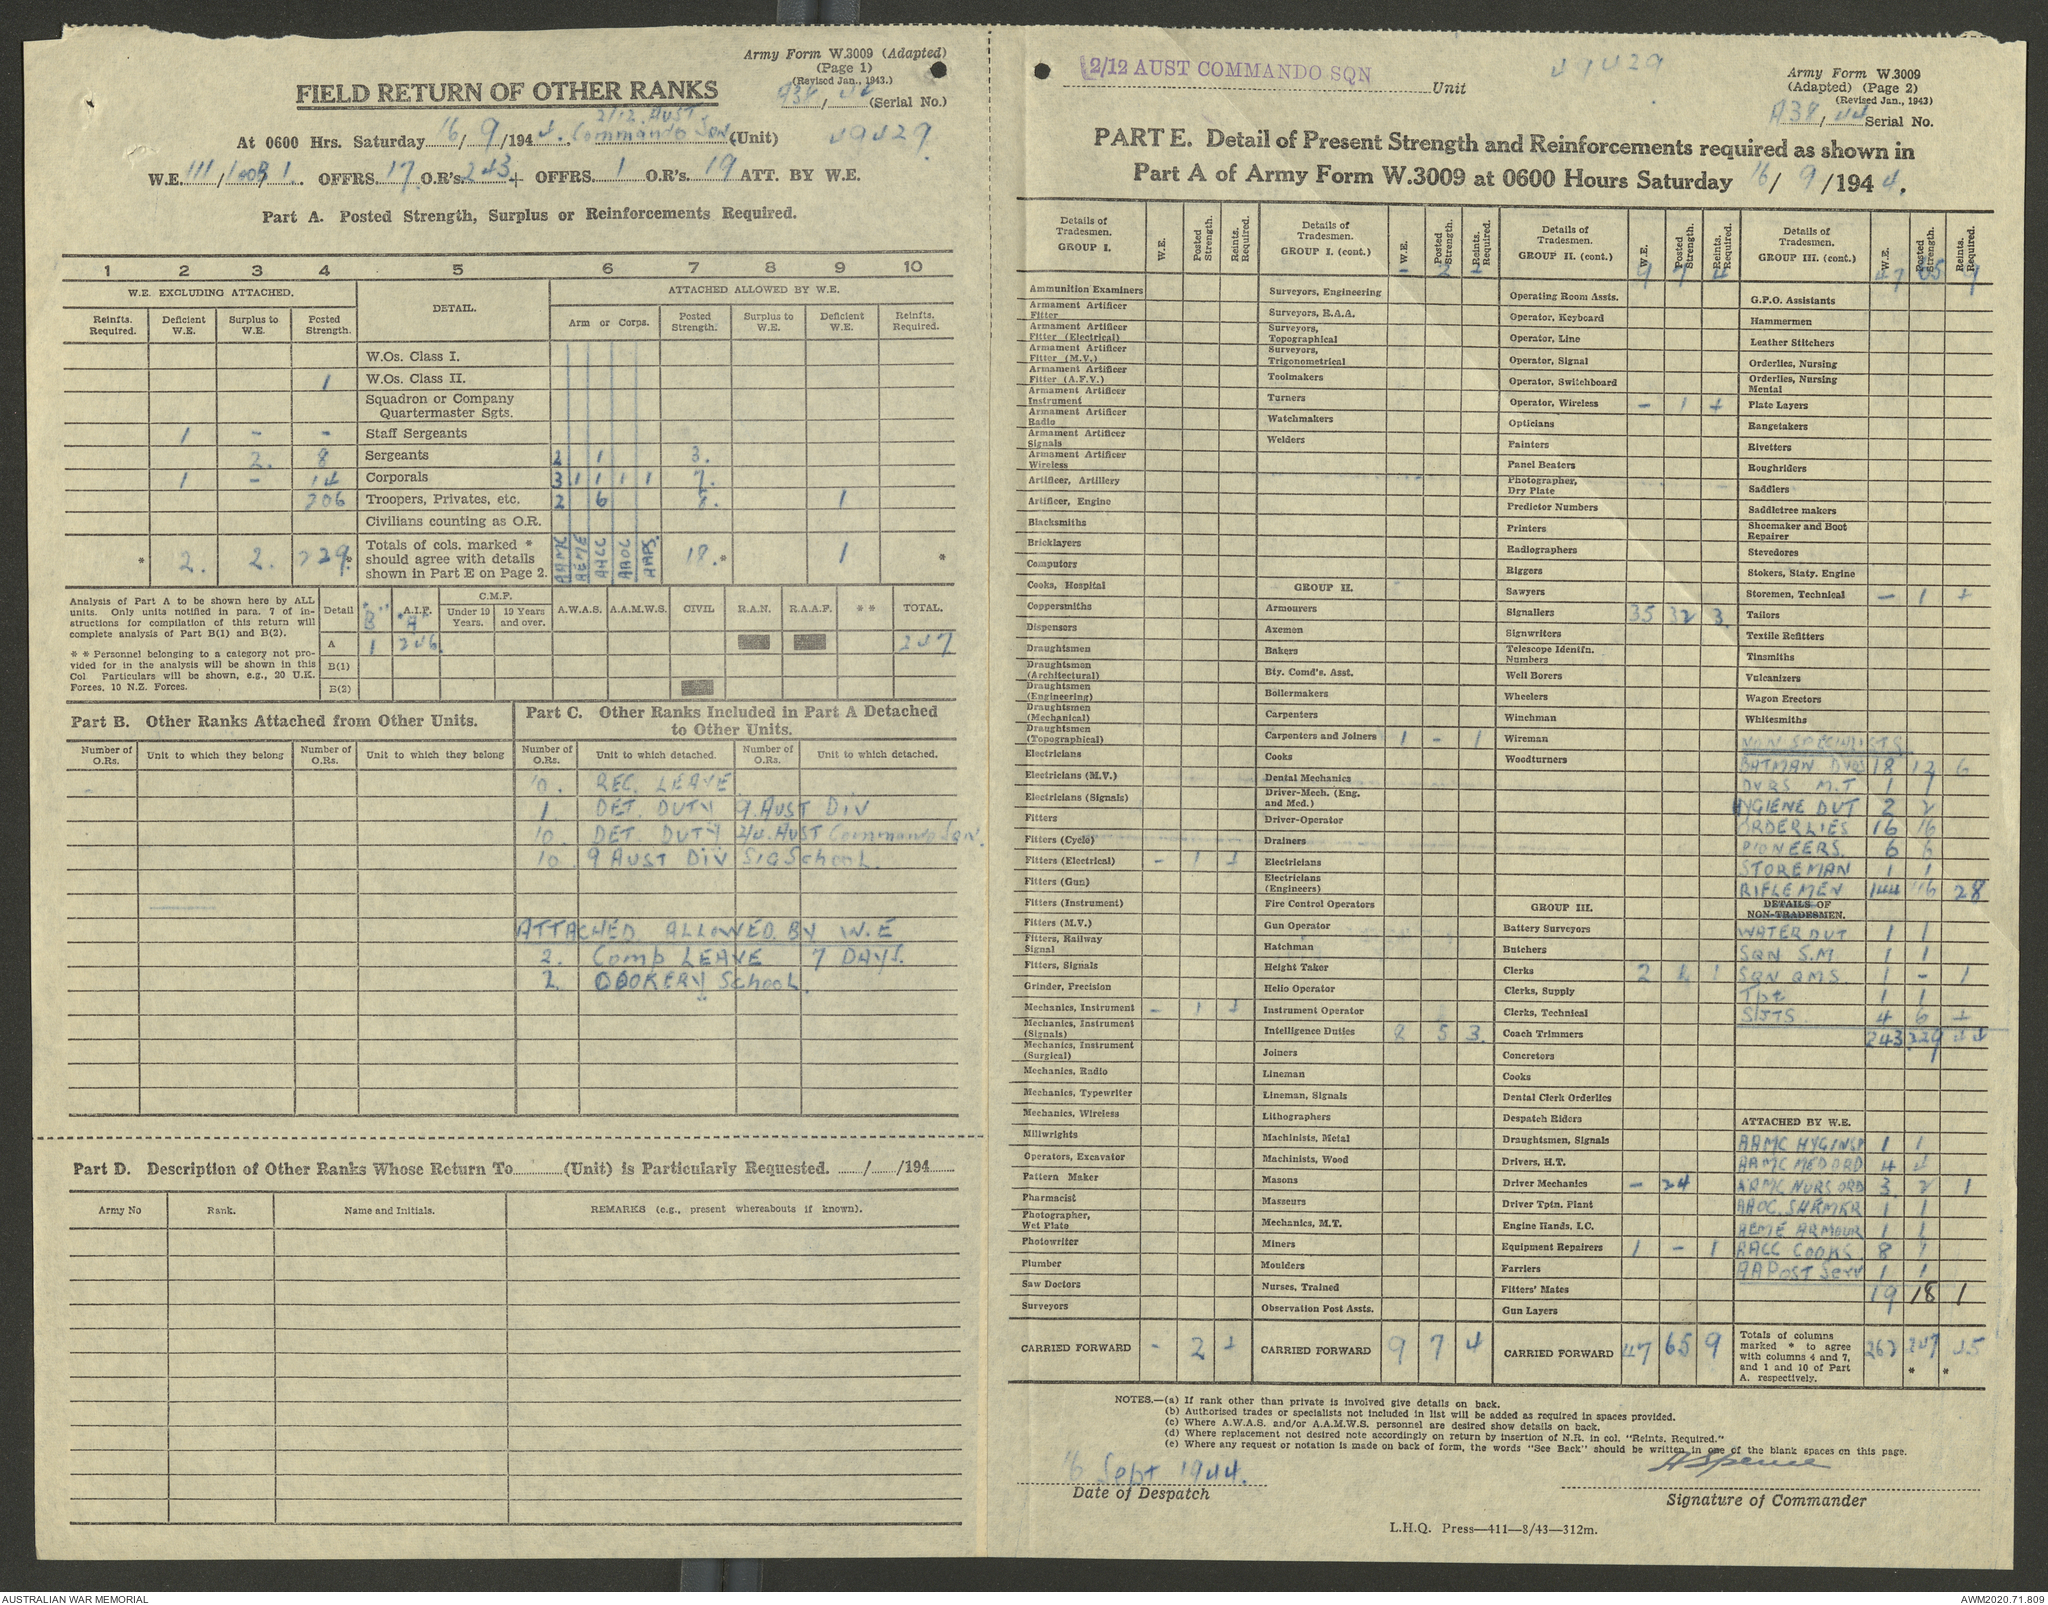 Army Form W.3009 (Adapted)
(Page 1)
(Revised Jan., 1943.)
A38/44 (Serial No.)
FIELD RETURN OF OTHER RANKS
At 0600 Hrs. Saturday 16/9/1944. 2/12 Aust Commando Sqn (Unit) 49429
W.E. 111/ OFFRS. 17 O.R's 243 + OFFRS. 1 O.R's. 19 ATT. BY W.E.
Part A. Posted Strength, Surplus or Reinforcements Required.
1 2 3 4 5 6 7 8 9 10
W.E. EXCLUDING ATTACHED. DETAIL. ATTACHED ALLOWED BY W.E.
Reinfts. Required. Deficient W.E. Surplus to W.E. Posted Strength. Arm or Corps. Posted Strength. Surplus to W.E. Deficient W.E. Reinfts. Required.
W.Os. Class I.
1 W.Os. Class II.
Squadron or Company Quartermaster Sgts.
1 - - Staff Sergeants
2. 8 Sergeants 2 1 3.
1 - 14 Corporals 3 1 1 1 1 7.
206 Troopers, Privates, etc. 2 6 8. 1
Civilians counting as O.R.
* 2. 2. 229* Totals of cols. marked * should agree with details shown in Part E on Page 2. AAMC AEME AACC AAOC AAPS. 18.* 1 *
Analysis of Part A to be shown here by ALL units. Only units notified in para. 7 of instructions for compilation of this return will complete analysis of Part B(1) and B(2).
* * Personnel belonging to a category not provided for in the analysis will be shown in this Col. Particulars will be shown, e.g., 20 U.K. Forces, 10 N.Z. Forces.
Detail "B" A.I.F. "A" C.M.F. Under 19 Years. 19 Years and over. A.W.A.S. A.A.M.W.S. CIVIL R.A.N. R.A.A.F. * * TOTAL.
A 1 246 247
B(1)
B(2)
Part B. Other Ranks Attached from Other Units.
Number of O.Rs. Unit to which they belong Number of O.Rs. Unit to which they belong
Part C. Other Ranks Included in Part A Detached to Other Units.
Number of O.Rs. Unit to which detached. Number of O.Rs. Unit to which detached.
10. REC. LEAVE
1. DET. DUTY 9 AUST DIV
10. DET. DUTY 2/4. AUST Commando Sqn.
10. 9 AUST DIV SIG School.
ATTACHED ALLOWED BY W.E
2. Comp LEAVE 7 DAYS.
2. COOKERY School.
Part D. Description of Other Ranks Whose Return To (Unit) is Particularly Requested. / /194
Army No Rank. Name and Initials. REMARKS (e.g., present whereabouts if known).
2/12 AUST COMMANDO SQN Unit
49429
Army Form W.3009
(Adapted) (Page 2)
(Revised Jan., 1943)
A38/44 Serial No.
PART E. Detail of Present Strength and Reinforcements required as shown in
Part A of Army Form W.3009 at 0600 Hours Saturday 16/9/1944.
Details of Tradesmen. GROUP I. W.E. Posted Strength. Reints. Required.
Ammunition Examiners
Armament Artificer Fitter
Armament Artificer Fitter (Electrical)
Armament Artificer Fitter (M.V.)
Armament Artificer Fitter (A.F.V.)
Armament Artificer Instrument
Armament Artificer Radio
Armament Artificer Signals
Armament Artificer Wireless
Artificer, Artillery
Artificer, Engine
Blacksmiths
Bricklayers
Computors
Cooks, Hospital
Coppersmiths
Dispensers
Draughtsmen
Draughtsmen (Architectural)
Draughtsmen (Engineering)
Draughtsmen (Mechanical)
Draughtsmen (Topographical)
Electricians
Electricians (M.V.)
Electricians (Signals)
Fitters
Fitters (Cycle)
Fitters (Electrical) - 1 +
Fitters (Gun)
Fitters (Instrument)
Fitters (M.V.)
Fitters, Railway Signal
Fitters, Signals
Grinder, Precision
Mechanics, Instrument - 1 +
Mechanics, Instrument (Signals)
Mechanics, Instrument (Surgical)
Mechanics, Radio
Mechanics, Typewriter
Mechanics, Wireless
Millwrights
Operators, Excavator
Pattern Maker
Pharmacist
Photographer, Wet Plate
Photowriter
Plumber
Saw Doctors
Surveyors
CARRIED FORWARD - 2 +
Details of Tradesmen. GROUP I. (cont.) W.E. Posted Strength. Reints. Required.
- 2 +
Surveyors, Engineering
Surveyors, R.A.A.
Surveyors, Topographical
Surveyors, Trigonometrical
Toolmakers
Turners
Watchmakers
Welders
GROUP II.
Armourers
Axemen
Bakers
Bty. Comd's. Asst.
Boilermakers
Carpenters
Carpenters and Joiners 1 - 1
Cooks
Dental Mechanics
Driver-Mech. (Eng. and Med.)
Driver-Operator
Drainers
Electricians
Electricians (Engineers)
Fire Control Operators
Gun Operator
Hatchman
Height Taker
Helio Operator
Instrument Operator
Intelligence Duties 8 5 3.
Joiners
Lineman
Lineman, Signals
Lithographers
Machinists, Metal
Machinists, Wood
Masons
Masseurs
Mechanics, M.T.
Miners
Moulders
Nurses, Trained
Observation Post Assts.
CARRIED FORWARD 9 7 4
Details of Tradesmen. GROUP II. (cont.) W.E. Posted Strength. Reints. Required.
9 7 4
Operating Room Assts.
Operator, Keyboard
Operator, Line
Operator, Signal
Operator, Switchboard
Operator, Wireless - 1 +
Opticians
Painters
Panel Beaters
Photographer, Dry Plate
Predictor Numbers
Printers
Radiographers
Riggers
Sawyers
Signallers 35 32 3.
Signwriters
Telescope Identfn. Numbers
Well Borers
Wheelers
Winchman
Wireman
Woodturners
GROUP III.
Battery Surveyors
Butchers
Clerks 2 1 1
Clerks, Supply
Clerks, Technical
Coach Trimmers
Concretors
Cooks
Dental Clerk Orderlies
Despatch Riders
Draughtsmen, Signals
Drivers, H.T.
Driver Mechanics - 24
Driver Tptn. Plant
Engine Hands, I.C.
Equipment Repairers 1 - 1
Farriers
Fitters' Mates
Gun Layers
CARRIED FORWARD 47 65 9
Details of Tradesmen. GROUP III. (cont.) W.E. Posted Strength. Reints. Required.
47 65 9
G.P.O. Assistants
Hammermen
Leather Stitchers
Orderlies, Nursing
Orderlies, Nursing Mental
Plate Layers
Rangetakers
Rivetters
Roughriders
Saddlers
Saddletree makers
Shoemaker and Boot Repairer
Stevedores
Stokers, Staty. Engine
Storemen, Technical - 1 +
Tailors
Textile Refitters
Tinsmiths
Vulcanizers
Wagon Erectors
Whitesmiths
NON SPECIALISTS
BATMAN DVRS 18 12 6
DVRS M.T 1 1
HYGIENE DUT 2 2
ORDERLIES 16 16
PIONEERS. 6 6
STOREMAN 1 1
RIFLEMEN 144 116 28
DETAILS OF NON-TRADESMEN.
WATER DUT 1 1
SQN S.M. 1 1
SQN QMS. 1 - 1
Tpt 1 1
SJTS. 4 6 +
243 229 44
ATTACHED BY W.E.
AAMC HYG 1 1
AAMC MED ORD 4 4
AAMC NURS ORD 3 2 1
AAOC. SHRMKR 1 1
AEME ARMOUR 1 1
AACC COOKS 8
AA POST Serv 1 1
19 18 1
Totals of columns marked * to agree with columns 4 and 7, and 1 and 10 of Part A. respectively. 262 247 * 45 *
NOTES.—(a) If rank other than private is involved give details on back.
(b) Authorised trades or specialists not included in list will be added as required in spaces provided.
(c) Where A.W.A.S. and/or A.A.M.W.S. personnel are desired show details on back.
(d) Where replacement not desired note accordingly on return by insertion of N.R. in col. "Reints. Required."
(e) Where any request or notation is made on back of form, the words "See Back" should be written in one of the blank spaces on this page.
16 Sept 1944.
Date of Despatch
A Spence
Signature of Commander
L.H.Q. Press—411—8/43—312m.
AUSTRALIAN WAR MEMORIAL
AWM2020.71.809